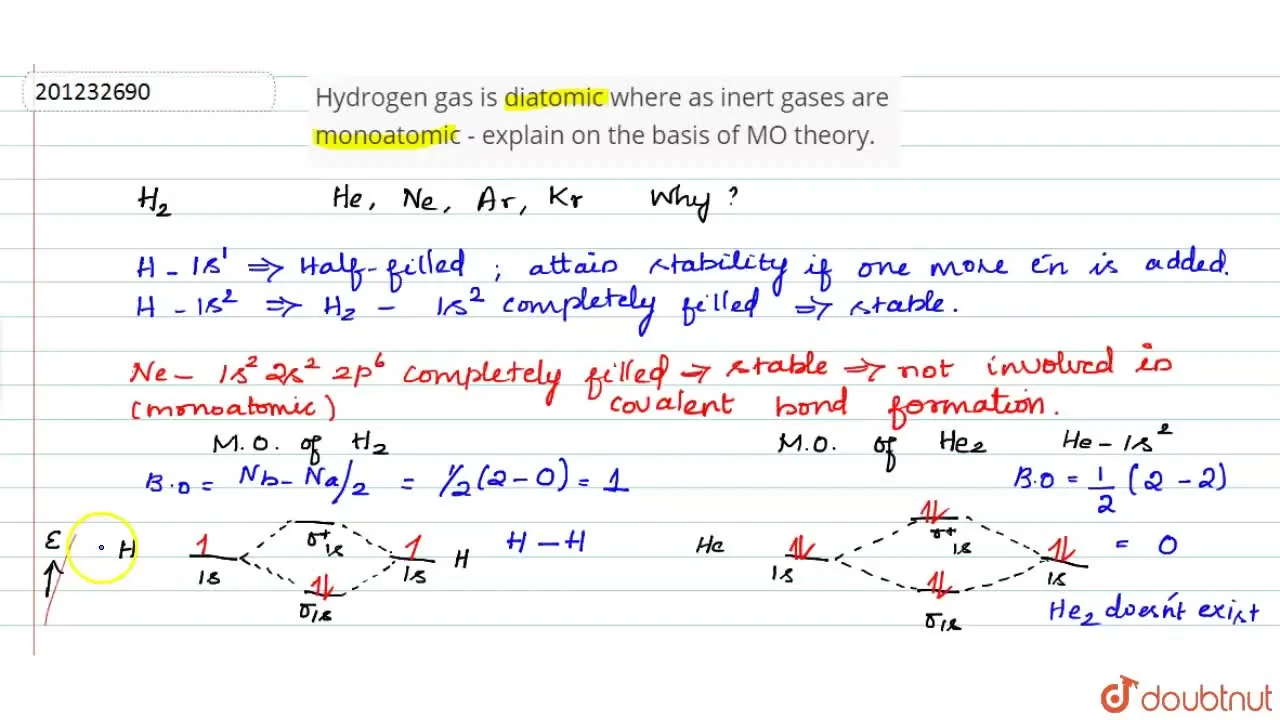 201232690
Hydrogen gas is diatomic where as inert gases are
monoatomic - explain on the basis of MO theory.
H₂ He, Ne, Ar, Kr Why ?
H - 1s¹ ⇒ Half-filled ; attain stability if one more e̅n is added.
H - 1s² ⇒ H₂ - 1s² completely filled ⇒ stable.
Ne - 1s² 2s² 2p⁶ completely filled → stable ⇒ not involved in
(monoatomic) covalent bond formation.
M.O. of H₂ M.O. of He₂ He - 1s²
B.O = Nb - Na/2 = 1/2 (2 - 0) = 1 B.O = 1/2 (2 - 2)
E H 1s σ*1s 1s H H - H He 1s σ*1s 1s = 0
σ1s σ1s He₂ doesn't exist
doubtnut